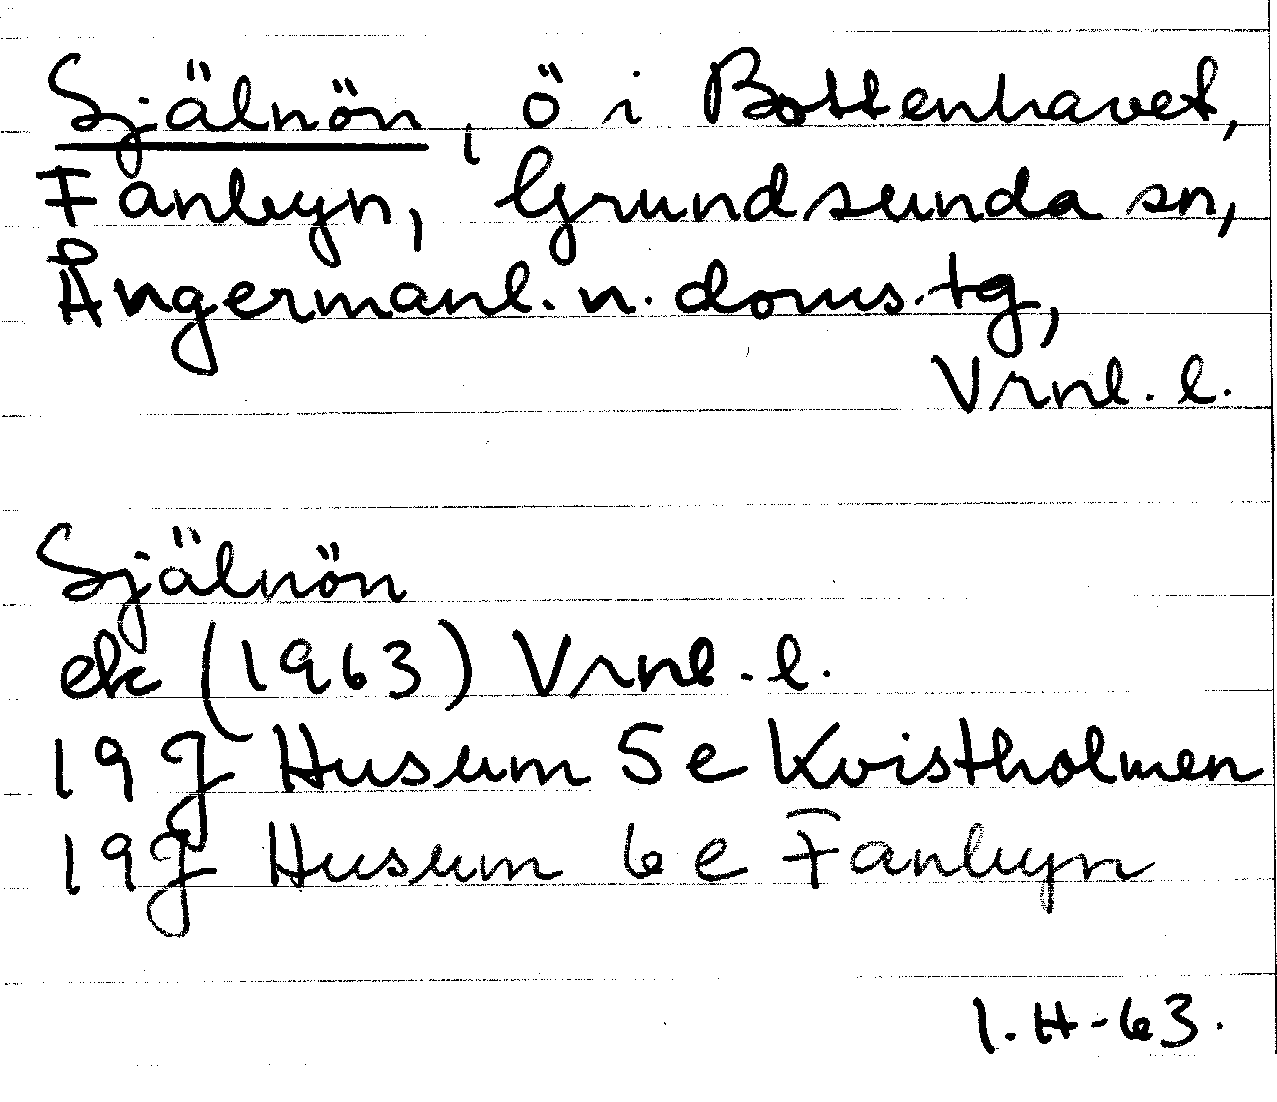 Själnön, ö i Bottenhavet,
Fanbyn, Grundsunda sn,
Ångermanl. n. doms.tg,
Vrnl. l.
Själnön
ek (1963) Vrnl. l.
19J Husum 5e Kvistholmen
19J Husum 6e Fanbyn
I.H-63.